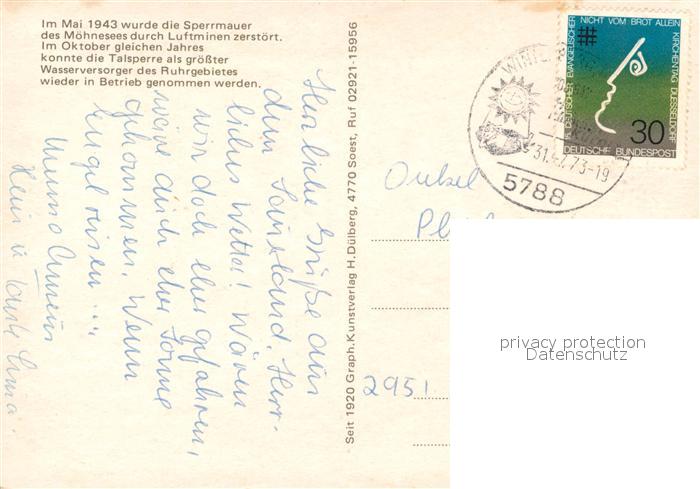 Im Mai 1943 wurde die Sperrmauer
des Möhnesees durch Luftminen zerstört.
Im Oktober gleichen Jahres
konnte die Talsperre als größter
Wasserversorger des Ruhrgebietes
wieder in Betrieb genommen werden.
Herzliche Grüße aus
dem Sauerland. Herr-
liches Wetter! Wären
wir doch eher gefahren,
meine auch eher Sonne
gekommen. Wenn
Engel reisen...
Seit 1920 Graph. Kunstverlag H. Dülberg, 4770 Soest, Ruf 02921-15956
NICHT VOM BROT ALLEIN
15. DEUTSCHER EVANGELISCHER
KIRCHENTAG DUESSELDORF
30
DEUTSCHE BUNDESPOST
31.-7.73-19
5788
2951
privacy protection
Datenschutz